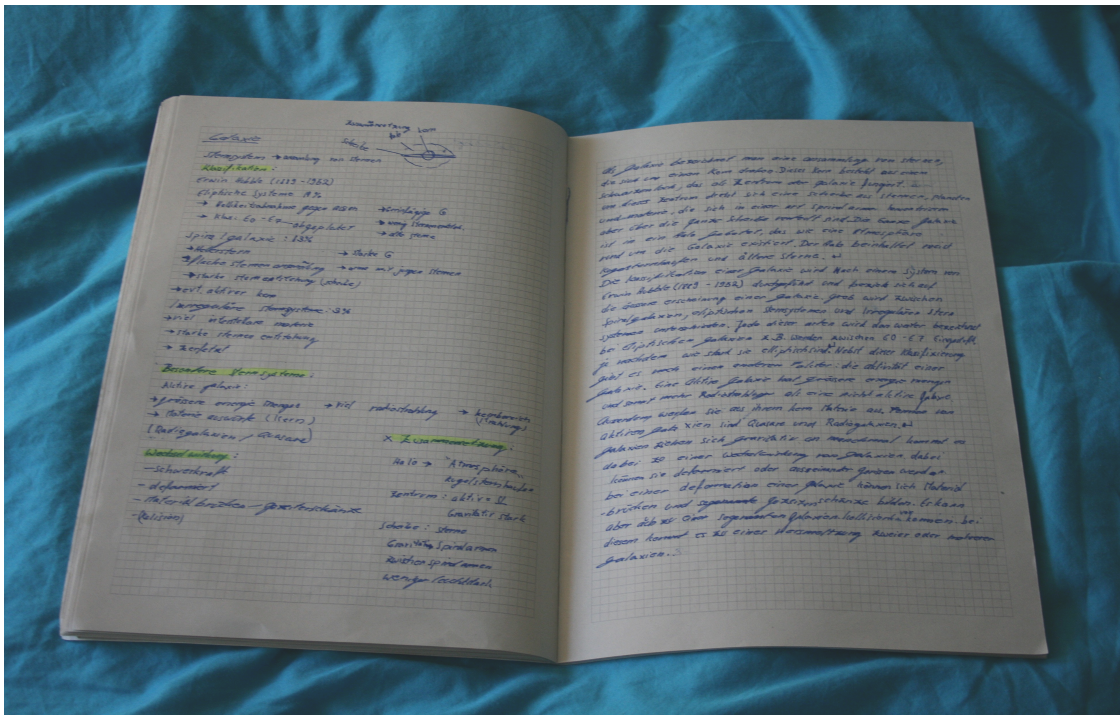 Zusammensetzung
Halo Kern
Scheibe
Galaxie
Sternsystem → ansammlung von sternen
Klassifikation:
Erwin Hubble (1889-1952)
Eliptische Systeme
→ Helligkeitabnahme gegen aussen
→ Klas. E0-E7 abgeplatet
→ alte sterne
Spiralgalaxie:
→ starke G
→ flache sternen
→ starke sternentstehung (scheibe)
→ evt. aktiver kern
irreguläre sternsysteme: 3%
→ viel interstelare materie
→ starke sternen entstehung
Besondere sternsysteme:
Aktive galaxie:
→ grössere energie mengen → viel radiostrahlung
→ Materie auswürfe (Kern)
(Radiogalaxien / Quasare)
x Zusammensetzung:
Wechselwirkung:
Halo → "Atmosphäre"
Kugelsternhaufen
- schwerkraft
- deformiert
Zentrum: aktiv SL
Gravitativ stark
- Material brücken - gezeitenschwänze
- (kolision)
Scheibe: sterne
Spiralarmen
zwischen spiralarmen
weniger leuchtstark
Als Galaxie bezeichnet man eine ansammlung von sternen,
die sich um einen Kern drehen. Dieser Kern besteht aus einem
schwarzen loch, das als Zentrum der galaxie fungiert.
um dieses Zentrum dreht sich eine scheibe aus sternen, planeten
und materie, die sich in einer mit spiralarmen
aber über die ganze scheibe verteilt sind. Die Ganze galaxie
ist in ein Halo das wie eine Atmosphäre
rund um die Galaxie existiert. Der Halo beinhaltet meist
Kugelsternhaufen und ältere sterne.
Die Klassifikation einer Galaxie wird nach einem System von
Erwin Hubble (1889 - 1952) durchgeführt und bezieht sich auf
die äussere erscheinung einer Galaxie. Grob wird zwischen
spiralgalaxien, eliptischen sternsystemen und irregulären stern
systemen unterschieden. Jede dieser arten wird dan weiter
bei Eliptischen galaxien z.B. werden zwischen E0 - E7 Eingestuft,
je nachdem wie stark sie elliptisch sind. Nebst dieser Klassifizierung
gibt es noch einen anderen Faktor: die aktivität einer
Galaxie. Eine Aktive Galaxie hat grössere energie mengen
und somit mehr Radiostrahlung als eine nicht aktive Galaxie.
Ausserdem werfen sie aus ihrem kern Materie aus. Formen von
aktiven galaxien sind Quasare und Radiogalaxien.
Galaxien ziehen sich gravitativ an manchmal kommt es
dabei zu einer wechselwirkung von galaxien. dabei
können sie deformiert oder auseinander gerissen werden
bei einer deformation einer galaxie können sich Material
-brücken und sogenannte gezeitenschwänze bilden. Es kann
aber auch zu einer sogenannten galaxienkollision kommen. bei
diesem kommt es zu einer Verschmelzung zweier oder mehreren
Galaxien.